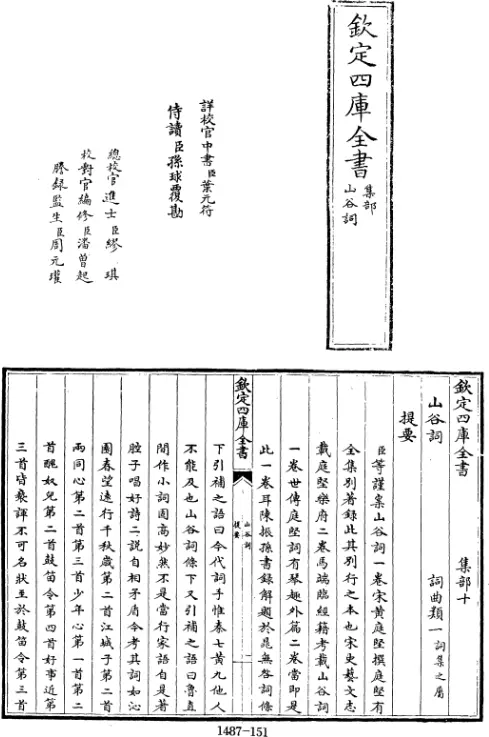 欽定四庫全書
集部
山谷詞
詳校官中書臣葉元符
侍讀臣孫球覆勘
總校官進士臣繆琪
校對官編修臣潘曾起
謄錄監生臣周元瓘
欽定四庫全書
集部十
山谷詞
詞曲類一詞集之屬
提要
臣等謹案山谷詞一卷宋黄庭堅撰庭堅有
全集别著録此其别行之本也宋史藝文志
載庭堅樂府二卷馬端臨經籍考載山谷詞
一卷世傳庭堅詞有琴趣外篇二卷當即是
此一卷耳陳振孫書録解題於晁無咎詞條
欽定四庫全書
山谷詞
提要
一
下引補之語曰今代詞手惟秦七黄九他人
不能及也山谷詞條下又引補之語曰魯直
間作小詞固髙妙然不是當行家語自是著
腔子唱好詩二説自相矛盾今考其詞如沁
園春望逺行千秋歳第二首江城子第二首
兩同心第二首第三首少年心第一首第二
首醜奴兒第二首鼓笛令第四首好事近第
三首皆䙝諢不可名狀至於鼓笛令第三首
1487-151